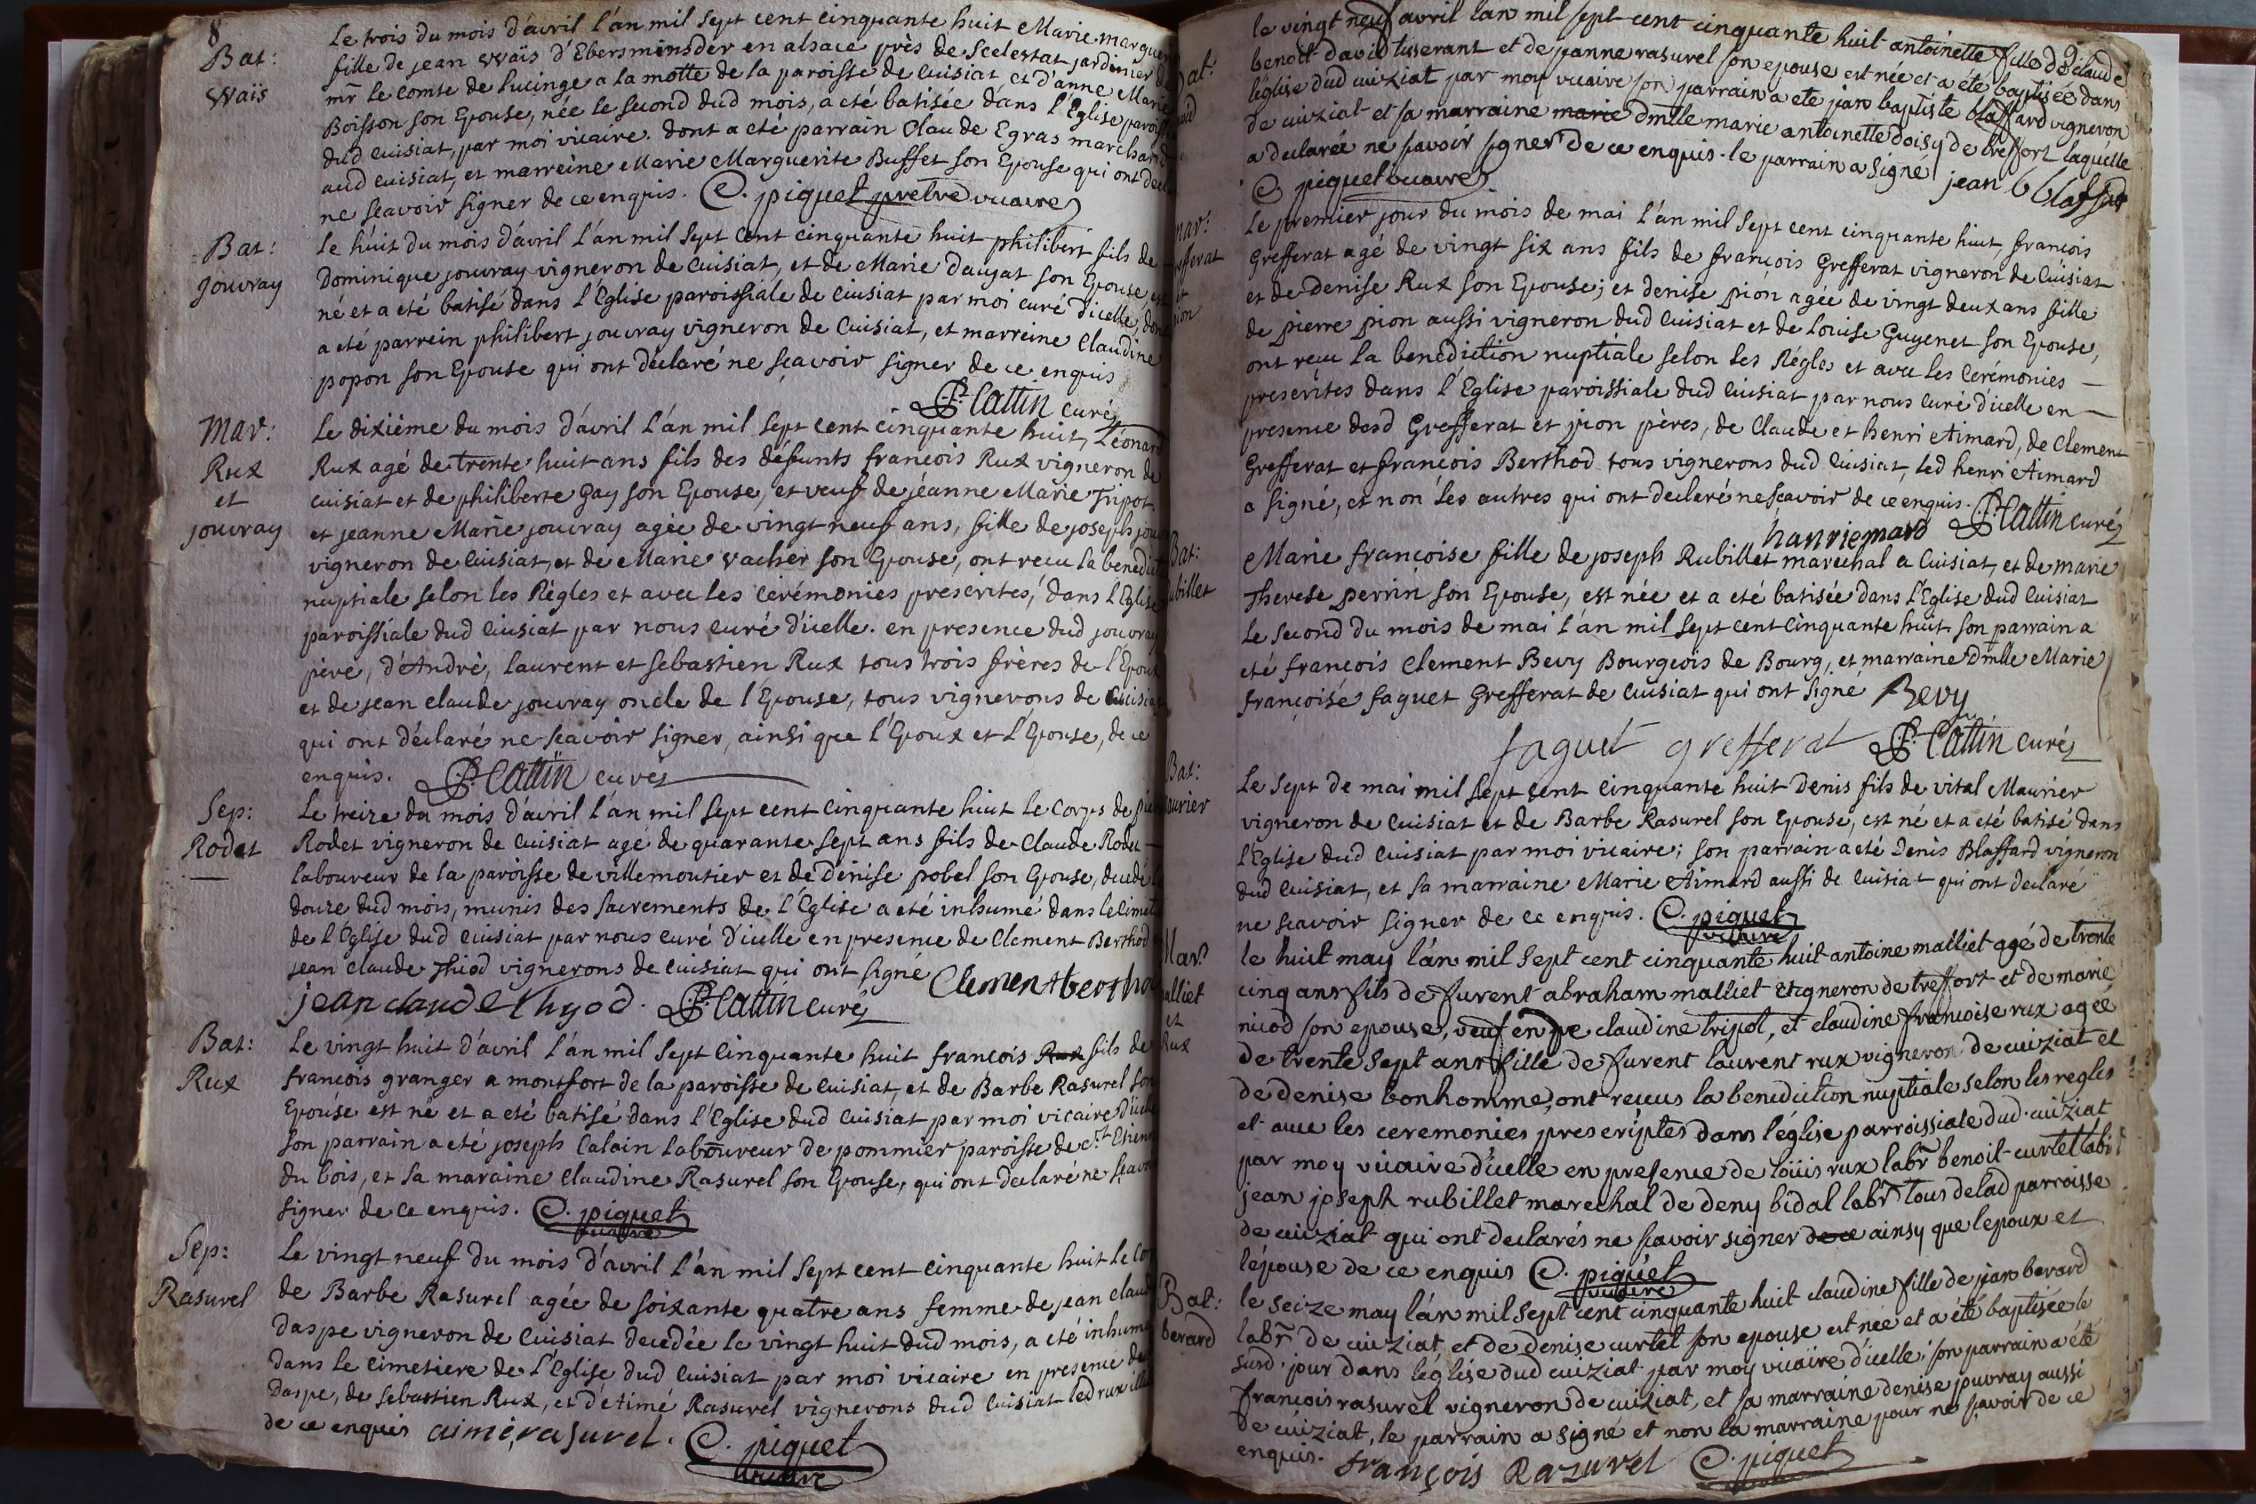 8
Bat:
Waïs
Le trois du mois d'avril l'an mil sept cent cinquante huit Marie Marguer
fille de jean Waïs d'Ebersminsder en alsace près de Scelestat jardinier d
mr le comte de Lucinge a la motte de la paroisse de Cuisiat et d'anne Marie
Boisson son Epouse, née le second dud mois, a eté batisée dans l'Eglise parois
dud Cuisiat, par moi vicaire. dont a eté parrain Claude Egras marchand
aud Cuisiat, et marreine Marie Marguerite Buffet son Epouse qui ont decl
ne sçavoir signer de ce enquis. C. piquet prêtre vicaire
Bat:
jouvray
Le huit du mois d'avril l'an mil sept cent cinquante huit philibert fils de
Dominique jouvray vigneron de Cuisiat, et de Marie daujat son Epouse est
né et a eté batisé dans l'Eglise paroissiale de Cuisiat par moi curé d'icelle, dont
a eté parrein philibert jouvray vigneron de Cuisiat, et marreine Claudine
popon son Epouse qui ont déclaré ne sçavoir signer de ce enquis
Cattin curé
Mar:
Rux
et
jouvray
Le dixième du mois d'avril l'an mil sept cent cinquante huit, Léonard
Rux agé de trente huit ans fils des défunts françois Rux vigneron de
cuisiat et de philiberte Gay son Epouse, et veuf de jéanne Marie Tripot,
et jeanne Marie jouvray agée de vingt neuf ans, fille de joseph jou
vigneron de Cuisiat, et de Marie vacher son Epouse, ont reçu la benedic
nuptiale selon les Règles et avec les cérémonies prescrites, dans l'Eglise
paroissiale dud Cuisiat par nous curé d'icelle. en presence dud jouvray
père, d'André, laurent et sebastien Rux tous trois frères de l'Epoux
et de jean claude jouvray oncle de l'Epouse, tous vignerons de Cuisiat
qui ont déclaré ne sçavoir signer, ainsi que l'Epoux et l'Epouse, de ce
enquis. Cattin curé
Sep:
Rodet
Le treize du mois d'avril l'an mil sept cent cinquante huit le corps de
Rodet vigneron de Cuisiat agé de quarante sept ans fils de Claude Rodet
laboureur de la paroisse de villemoutier et de denise pobel son Epouse, decedé
douze dud mois, munis des sacrements de l'Eglise a eté inhumé dans le cimet
de l'Eglise dud Cuisiat par nous curé d'icelle en presence de Clement Berthod
jean Claude Thiod vignerons de Cuisiat qui ont signé Clement bertho
jean claude thyod. Cattin curé
Bat:
Rux
Le vingt huit d'avril l'an mil sept Cinquante huit françois Rux fils de
françois granger a montfort de la paroisse de Cuisiat, et de Barbe Rasurel son
Epouse est né et a eté batisé dans l'Eglise dud Cuisiat par moi vicaire d'icelle
son parrain a eté joseph Calain laboureur de pommier paroisse de St Etienn
du bois, et sa maraine Claudine Rasurel son Epouse, qui ont declaré ne sçavoi
signer de ce enquis. C. piquet
vicaire
Sep:
Rasurel
Le vingt neuf du mois d'avril l'an mil sept cent cinquante huit le Cor
de Barbe Rasurel agée de soixante quatre ans femme de jean claud
daspe vigneron de Cuisiat decedée le vingt huit dud mois, a eté inhumé
dans le cimetiere de l'Eglise dud Cuisiat par moi vicaire en presence de
daspe, de sebastien Rux, et d'étimé Rasurel vignerons dud Cuisiat led rux ill
de ce enquis aimé rasurel. C. piquet
vicaire
le vingt neuf avril lan mil sept cent cinquante huit antoinette fille de claude
benoît david tisserant et de jeanne rasurel son epouse est née et a été baptisée dans
l'église dud cuiziat par moy vicaire son parrain a eté jean baptiste blaffard vigneron
de cuiziat et sa marraine marie dmlle marie antoinette doisy de treffort laquelle
a declarée ne savoir signer de ce enquis. le parrain a signé jean b blaffard
C piquet vicaire
mar:
efferat
et
pion
Le premier jour du mois de mai l'an mil sept cent cinquante huit, françois
Grefferat agé de vingt six ans fils de françois Grefferat vigneron de Cuisiat
et de Denise Rux son Epouse; et denise pion agée de vingt deux ans fille
de pierre pion aussi vigneron dud Cuisiat et de Louise Guyenet son Epouse,
ont reçu la benediction nuptiale selon les Règles et avec les cérémonies
prescrites dans l'Eglise paroissiale dud Cuisiat par nous curé d'icelle en
presence desd Grefferat et pion pères, de Claude et henri Aimard, de Clement
Grefferat et françois Berthod tous vignerons dud Cuisiat, led henri Aimard
a signé, et non les autres qui ont declaré ne sçavoir de ce enquis. Cattin curé
hanriemard
Bat:
ubillet
Marie françoise fille de joseph Rubillet marechal a Cuisiat, et de marie
Therese perrin son Epouse, est née et a eté batisée dans l'Eglise dud Cuisiat
Le second du mois de mai l'an mil sept cent cinquante huit, son parrain a
eté françois Clement Bevy Bourgeois de Bourg, et marraine Dmlle Marie
françoise faguet Grefferat de Cuisiat qui ont signé Bevy
faguet grefferat Cattin curé
Bat:
aurier
Le sept de mai mil sept cent cinquante huit Denis fils de vital Maurier
vigneron de Cuisiat et de Barbe Rasurel son Epouse, est né et a eté batisé dans
l'Eglise dud Cuisiat par moi vicaire; son parrain a eté Denis Blaffard vigneron
dud Cuisiat, et sa marraine Marie Aimard aussi de Cuisiat qui ont declaré
ne sçavoir signer de ce enquis. C. piquet
vicaire
Mar:
alliet
et
Rux
le huit may l'an mil sept cent cinquante huit antoine malliet agé de trente
cinq ans fils de furent abraham malliet vigneron de treffort et de marie
nicod son epouse, veuf en pre claudine tripot, et claudine francoise rux agée
de trente sept ans fille de furent laurent rux vigneron de cuiziat et
de denise bonhomme, ont recus la benediction nuptiale selon les regles
et avec les ceremonies prescriptes dans l'église parroissiale dud. cuiziat
par moy vicaire d'icelle en presence de loüis rux labr benoit curtet labr
jean joseph rubillet marechal de deny bidal labr tous de lad parroisse
de cuiziat qui ont declarés ne scavoir signer de ce ainsy que lepoux et
lépouse de ce enquis C. piquet
vicaire
Bat:
berard
le seize may l'an mil sept cent cinquante huit claudine fille de jean berard
labr de cuiziat, et de denise curtet son epouse est née et a été baptisée le
susd. jour dans léglise dud cuiziat par moy vicaire d'icelle; son parrain a été
francois rasurel vigneron de cuiziat, et sa marraine denise jouvray aussi
de cuiziat, le parrain a signé et non la marraine pour ne savoir de ce
enquis. françois Razurel C. piquet